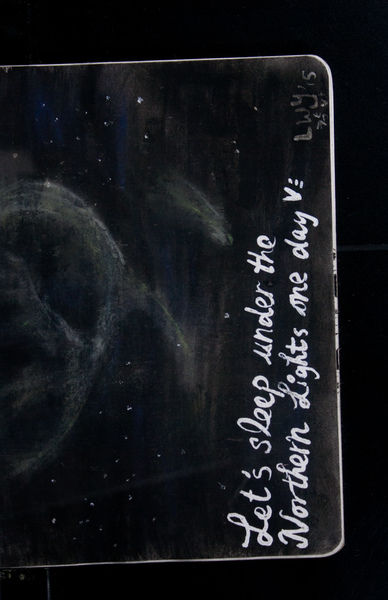 Let's sleep under the
Northern Lights one day V:
LWY '15